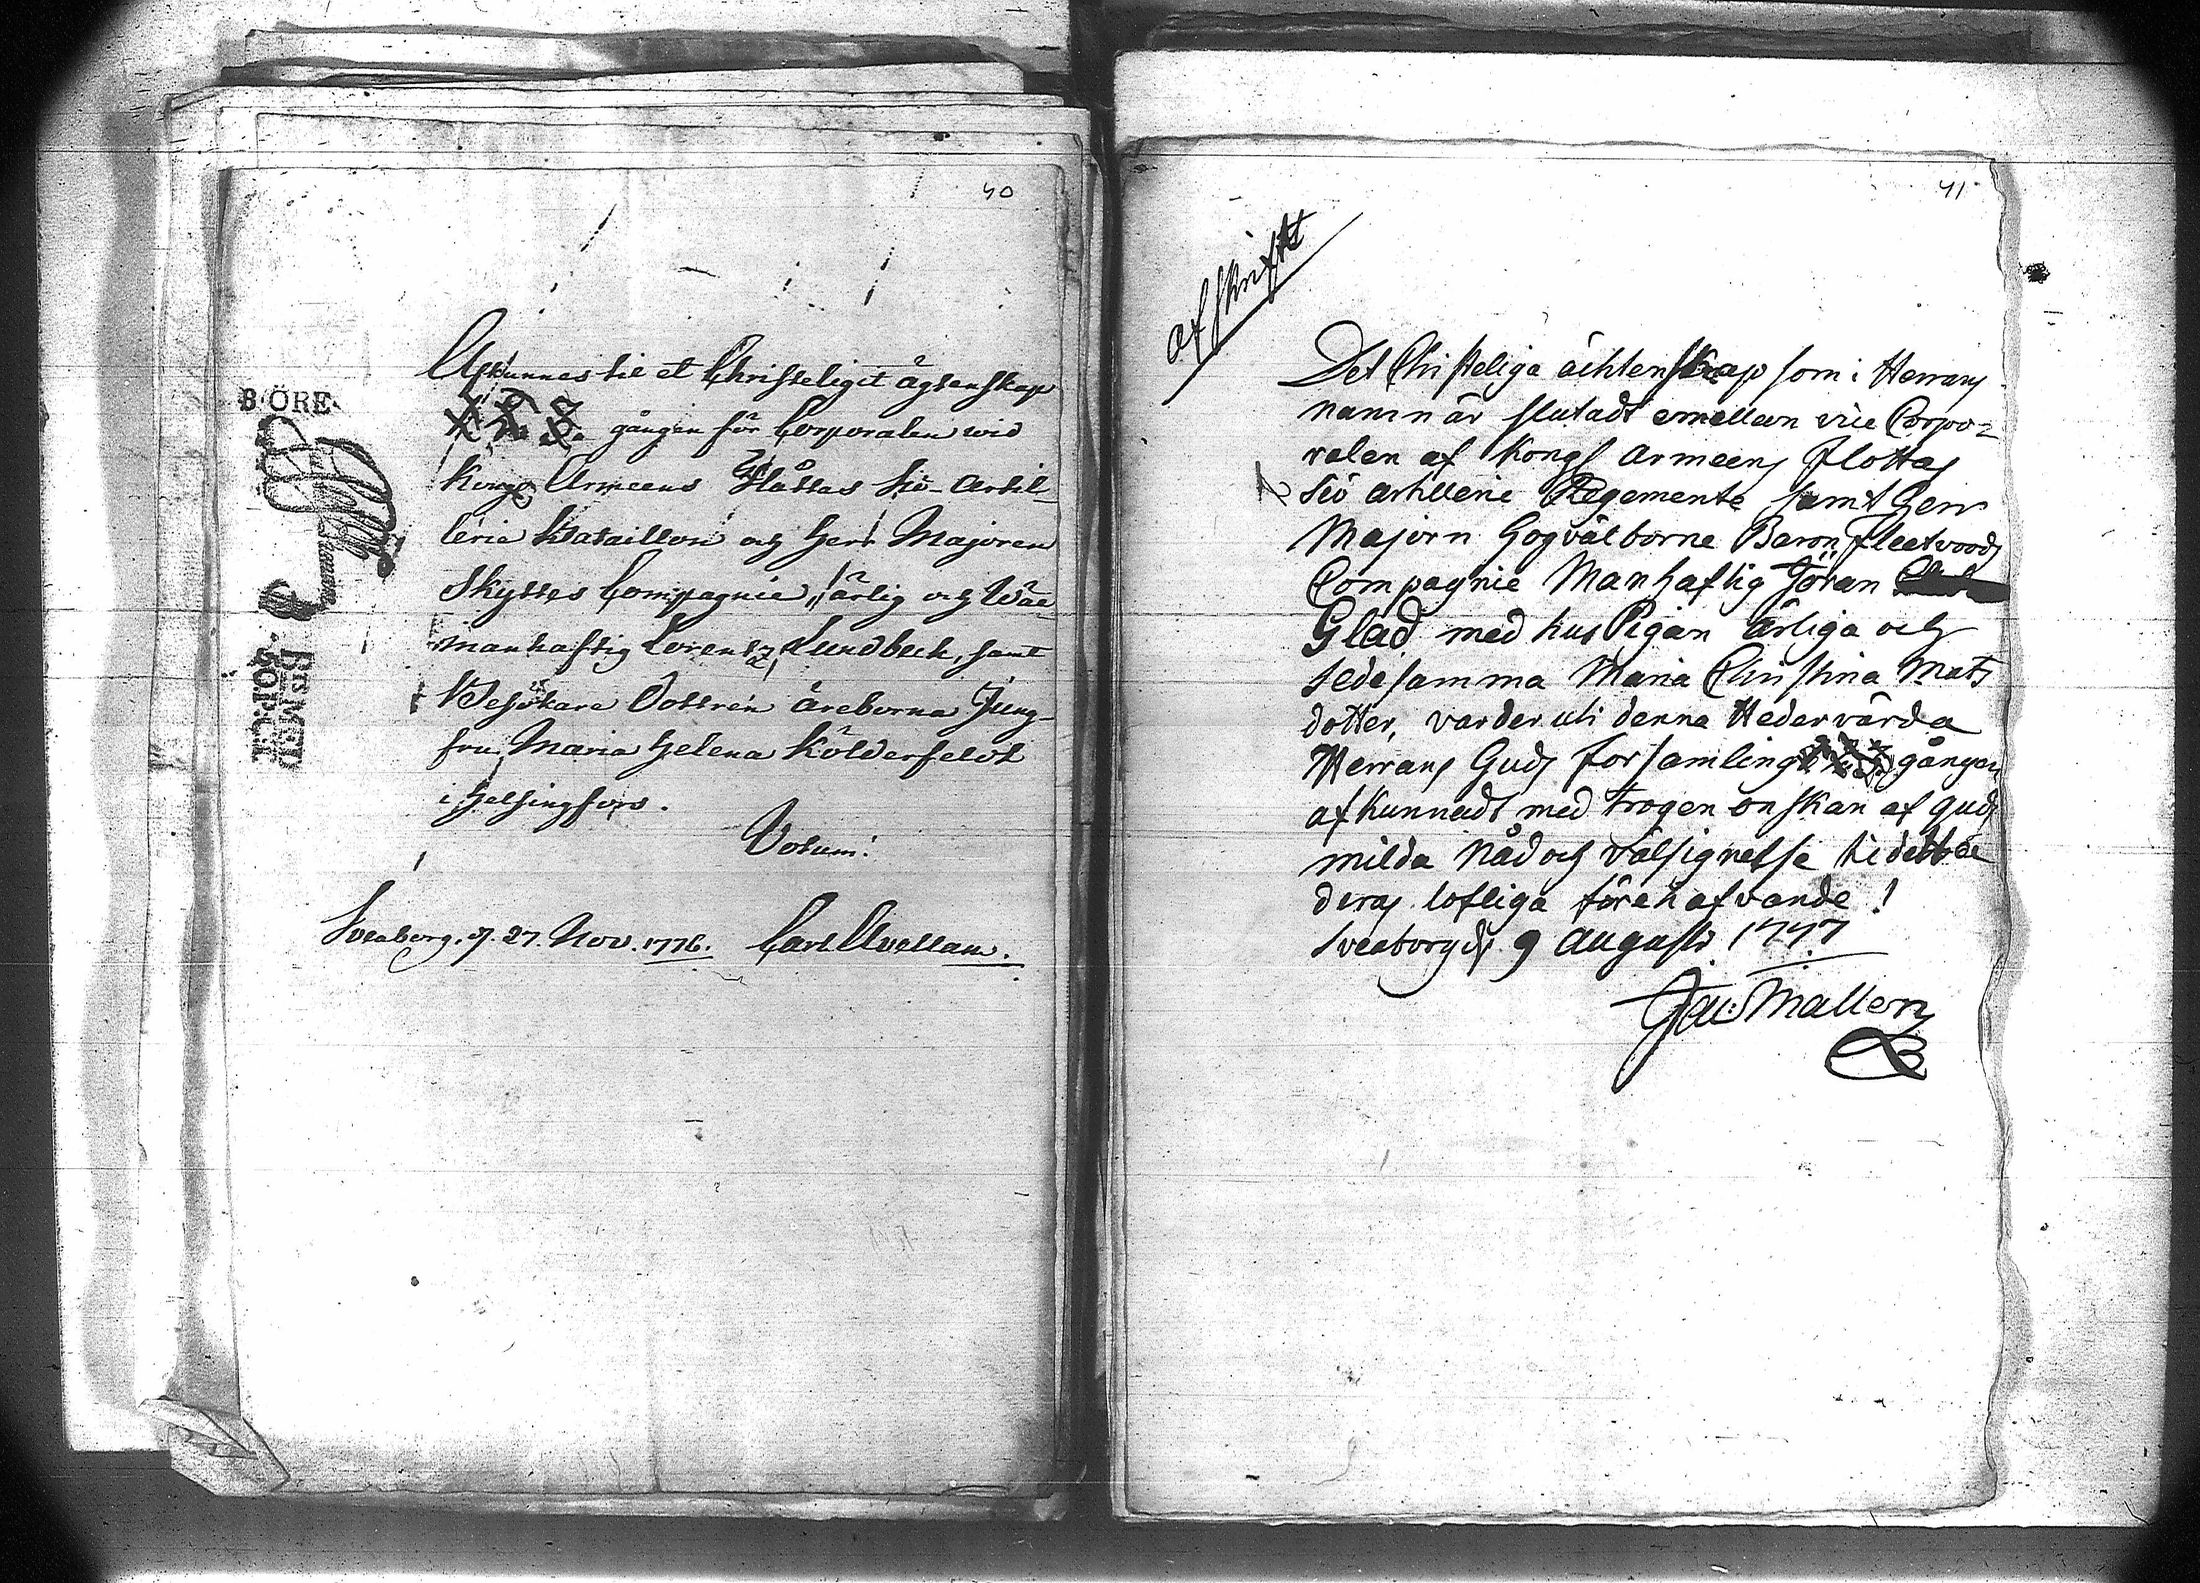 40
Afkunnes til et Christeligit ägtenskap
1. 2. 3. gången för Corporalen wid
Kongs Armeens Flottas Siö-Artil-
lerie Bataillon och Herr Majoren
Skyttes Compagnie, ärlig och Wäl
manhaftig Lorentz Lundbeck, samt
Besökare Dottren äreborna Jung-
fru Maria Helena Kölderfeldt
i Helsingfors.
Votum:
Sveaborg. d. 27. Nov. 1776. Carl Avellan.
8 ÖRE
SÖLF:MT
41
afskrift
Det Christeliga ächtenskap som i Herrans
namn är slutadt emellan vice Corpo-
ralen af Kongs Armeens flottas
Siö Artillerie Regemente samt Herr
Majorn Högvälborne Baron Fleetwoods
Compagnie Manhaftig Jöran
Glad med hus Pigan ärliga och
sedesamma Maria Christina Mats
dotter, varder uti denna Hedervärda
Herrans Guds Församling 1. 2. 3. gången
afkunnadt med trogen önskan af guds
milda Nåd och välsignelse til detta
deras lofliga förehafvande!
Sveaborg d. 9 Augusti 1777
Gu: Mallen